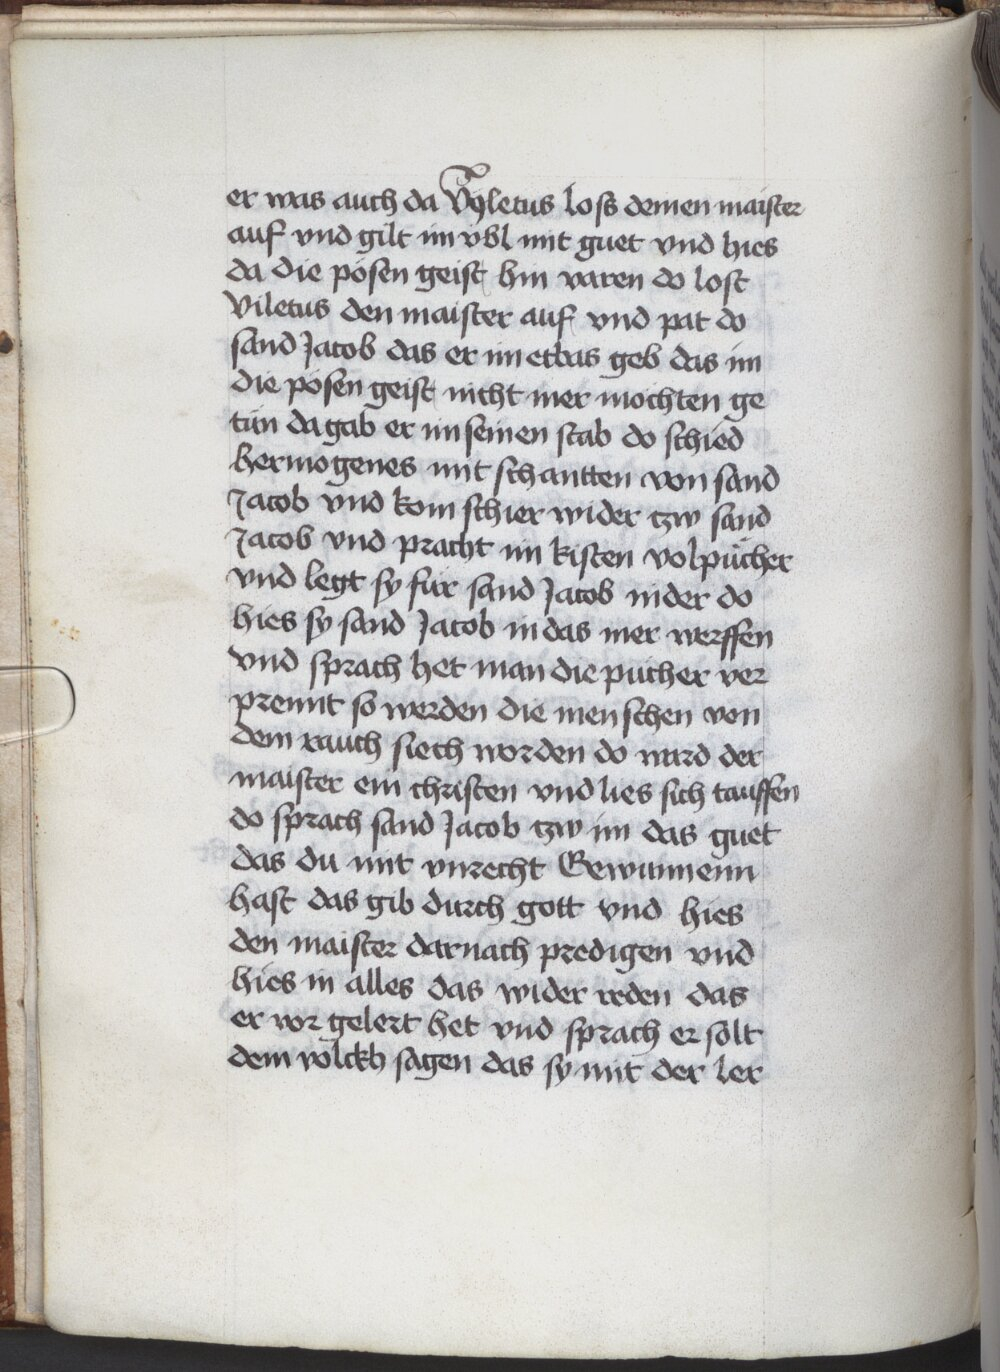 er was auch da Vyletus loss deinen maister
auf vnd gilt im vbl mit guet vnd hies
da die pösen geist hin varen do lost
Viletus den maister auf vnd pat do
sand Jacob das er im etbas geb das im
die pösen geist nicht mer mochten ge
tün da gab er im seinen stab do schied
hermogenes mit schantten von sand
Jacob vnd kom schier wider tzw sand
Jacob vnd pracht im kisten vol pücher
vnd legt sy für sand Jacob nider do
hies sy sand Jacob in das mer werffen
vnd sprach het man die pücher ver
prennt so werden die menschen von
dem rauch siech worden do ward der
maister ein christen vnd lies sich tauffen
do sprach sand Jacob tzw im das guet
das du mit vnrecht Gewunnenn
hast das gib durch gott vnd hies
den maister darnach predigen vnd
hies in alles das wider reden das
er vor gelert het vnd sprach er solt
dem volckh sagen das sy mit der ler